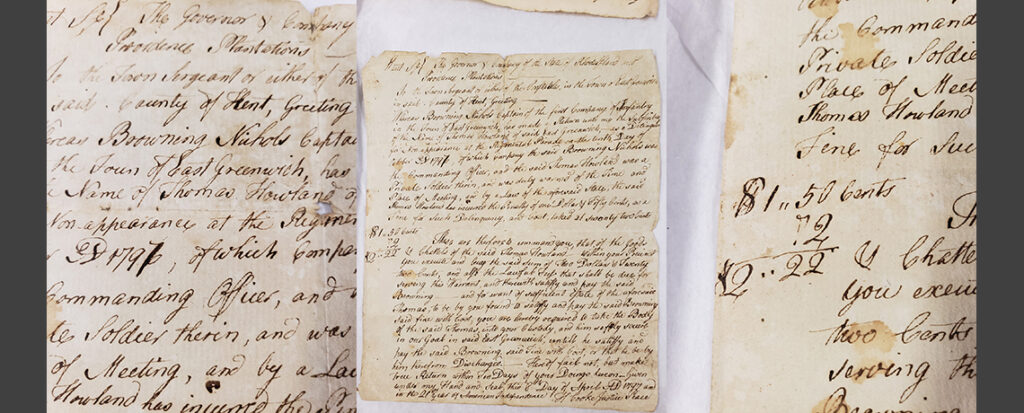 The Governor & Company
Providence Plantations
the Town Sergeant or either of th
said County of Kent, Greeting
Browning Nichols Capta
the Town of East Greenwich, has
Name of Thomas Howland of
Non-appearance at the Regimen
AD 1797, of which Compa
Commanding Officer, and
Soldier therin, and was
of Meeting, and by a Law
Howland has incurred the
Kent Sc/ The Governor & Company of the State of Rhode Island and
Providence Plantations
To the Town Sergeant or either of the Constables, in the Town of East Greenwich
in said County of Kent, Greeting
Whereas Browning Nichols Captain of the first Company of Infantry
in the Town of East Greenwich, has made a Return unto me the Subscriber
of the Name of Thomas Howland of said East Greenwich, as a Delinquent
in Non appearance at the Regimental Parade on the Day of
AD 1797, of which Company the said Browning Nichols was
the Commanding Officer, and the said Thomas Howland was a
Private Soldier therin, and was duly warned of the Time and
Place of Meeting, and by a Law of the aforesaid State, the said
Thomas Howland has incurred the Penalty of one Dollar & Fifty Cents, as a
Fine for Such Delinquency, and Cost, taxed at Seventy two Cents
$1..50 Cents
72
$2..22
These are therefore to command you, that of the Goods
& Chattels of the said Thomas Howland within your Precinct
you execute and levy the said Sum of two Dollars & Twenty
two Cents, and also the Lawful Fees that shall be due for
serving this Warrant, and therewith satisfy and pay the said
Browning and for want of sufficient Estate, of the aforesaid
Thomas, to be by you found to satisfy and pay the said Browning
said fine with Cost, you are hereby required to take the Body
of the said Thomas, into your Custody, and him safely secure
in our Goal in said East Greenwich, untill he satisfy and
pay the said Browning said Fine with Cost, or that he be by
him therefrom Discharged. Hereof fail not, and make
true Return within Ten Days of your Doings herein. Given
under my Hand and Seal, this Day of April AD 1797 and
in the 21st Year of American Independence
Cooke Justice Peace
the Command
Private Soldie
Place of Meet
Thomas Howland
Fine for Suc
$1..50 Cents
72
$2..22
& Chatte
you execu
two Cents
serving th